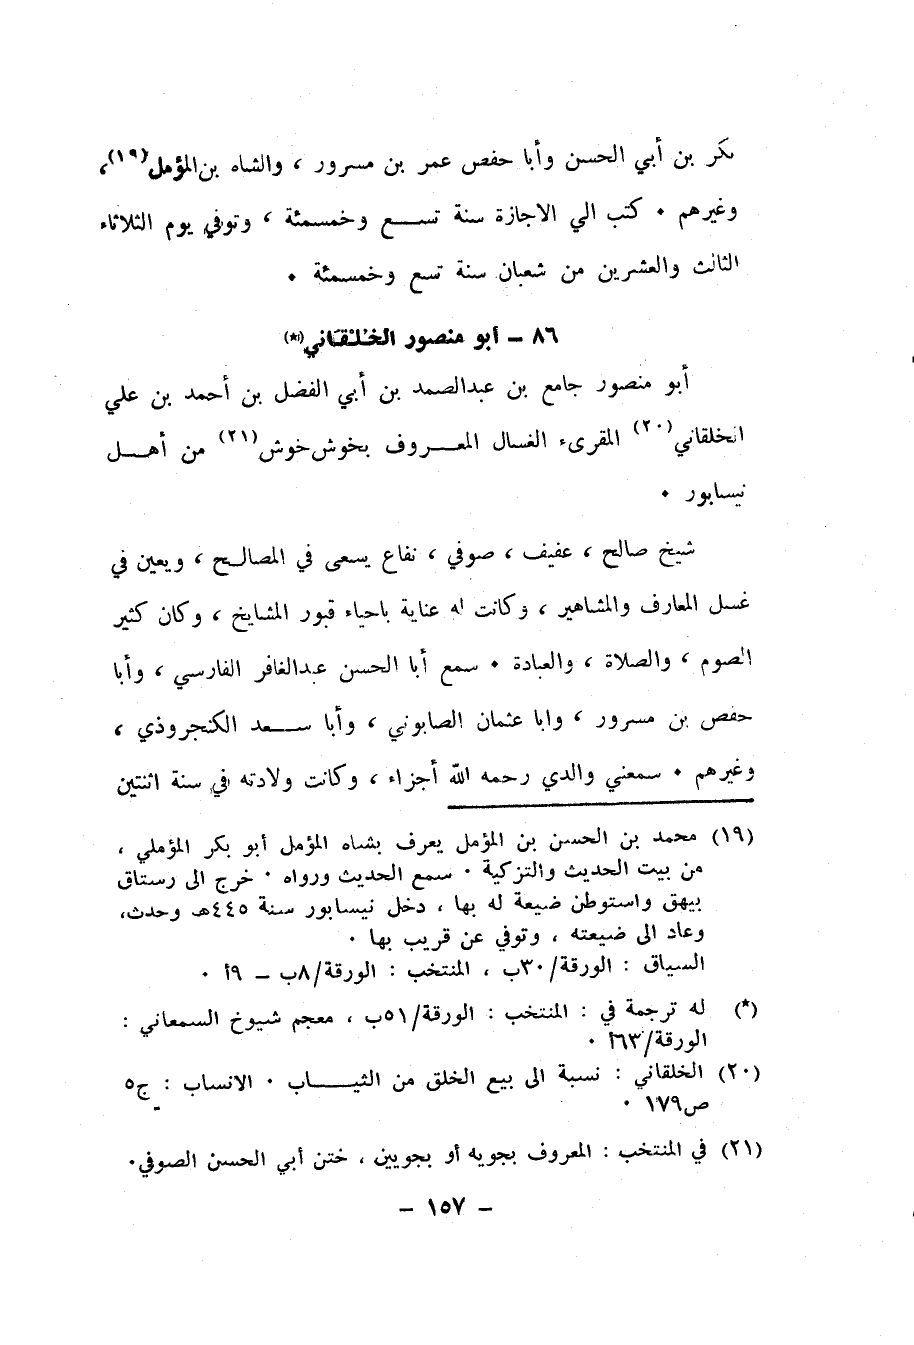 بكر بن أبي الحسن وأبا حفص عمر بن مسرور ، والشاه بن المؤمل(١٩)،
وغيرهم ٠ كتب الي الاجازة سنة تســـع وخمسمئة ، وتوفي يوم الثلاثاء
الثالث والعشرين من شعبان سنة تسع وخمسمئة ٠
٨٦ – أبو منصور الخُلْقَاني(*)
أبو منصور جامع بن عبدالصمد بن أبي الفضل بن أحمد بن علي
الخلقاني(٢٠) المقرىء الغسال المعـــروف بخوش خوش(٢١) من أهـــل
نيسابور ٠
شيخ صالح ، عفيف ، صوفي ، نفاع يسعى في المصالـح ، ويعين في
غسل المعارف والمشاهير ، وكانت له عناية باحياء قبور المشايخ ، وكان كثير
الصوم ، والصلاة ، والعبادة ٠ سمع أبا الحسن عبدالغافر الفارسي ، وأبا
حفص بن مسرور ، وابا عثمان الصابوني ، وأبا ســـعد الكنجروذي ،
وغيرهم ٠ سمعني والدي رحمه الله أجزاء ، وكانت ولادته في سنة اثنتين
(١٩) محمد بن الحسن بن المؤمل يعرف بشاه المؤمل أبو بكر المؤملي ،
من بيت الحديث والتزكية ٠ سمع الحديث ورواه ٠ خرج الى رستاق
بيهق واستوطن ضيعة له بها ، دخل نيسابور سنة ٤٤٥هـ وحدث،
وعاد الى ضيعته ، وتوفي عن قريب بها ٠
السياق : الورقة/٣٠ب ، المنتخب : الورقة/٨ب – ٩أ ٠
(*) له ترجمة في : المنتخب : الورقة/٥١ب ، معجم شيوخ السمعاني :
الورقة/٦٣أ ٠
(٢٠) الخلقاني : نسبة الى بيع الخلق من الثيـــاب ٠ الانساب : ج٥
ص١٧٩ ٠
(٢١) في المنتخب : المعروف بجويه أو بجويين ، ختن أبي الحسن الصوفي٠
– ١٥٧ –